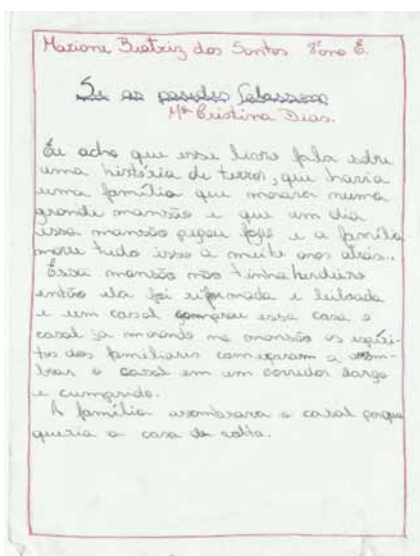 Mariane Beatriz dos Santos 8º ano E.
Se as paredes falassem
Mª Cristina Dias.
Eu acho que esse livro fala sobre
uma história de terror, que havia
uma família que morava numa
grande mansão e que um dia
essa mansão pegou fogo e a família
morre tudo isso a muito anos atrás...
Essa mansão não tinha herdeiro
então ela foi reformada e leiloada
e um casal comprou essa casa o
casal já morando na mansão os espíri-
tos dos familiares começaram a assom-
brar o casal em um corredor largo
e cumprido.
A família assombrava o casal porque
queria a casa de volta.